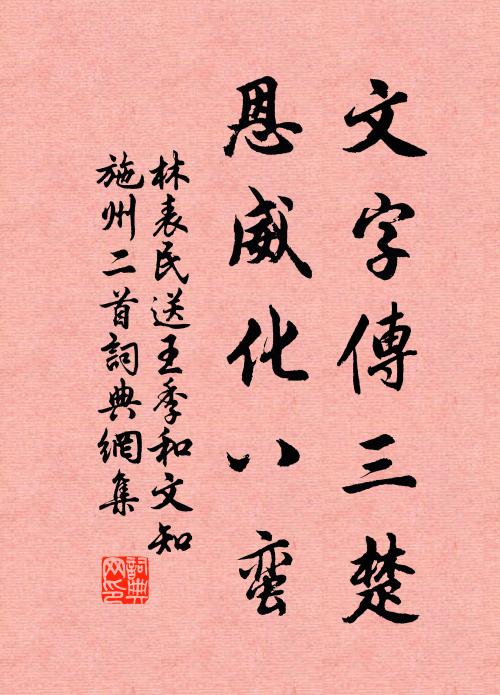 文字傳三楚
恩威化八蛮
林表民送王季和文知
施州二首詞典網集
詞典
网印